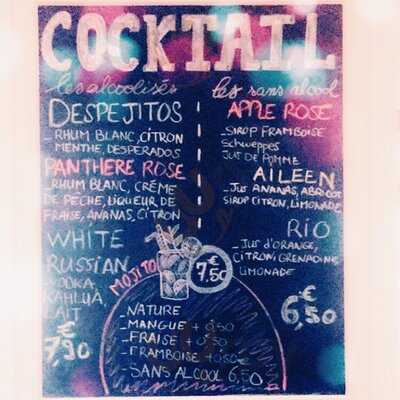 COCKTAIL
les alcoolisés
DESPEJITOS
_RHUM BLANC, CITRON
MENTHE, DESPERADOS
PANTHERE ROSE
_RHUM BLANC, CRÈME
DE PECHE, LIQUEUR DE
FRAISE, ANANAS, CITRON
WHITE
RUSSIAN
VODKA,
KAHLUA,
LAIT
€
7,90
les sans alcool
APPLE ROSE
_SIROP FRAMBOISE
Schweppes
JUS DE POMME
AILEEN
_JUS ANANAS, ABRICOT
SIROP CITRON, LIMONADE
RIO
_JUS D'ORANGE,
CITRON, GRENADINE
LIMONADE
€
6,50
MOJITO
€
7,50
_NATURE
_MANGUE + 0,50
_FRAISE + 0,50
_FRAMBOISE + 0,50
_SANS ALCOOL 6,50